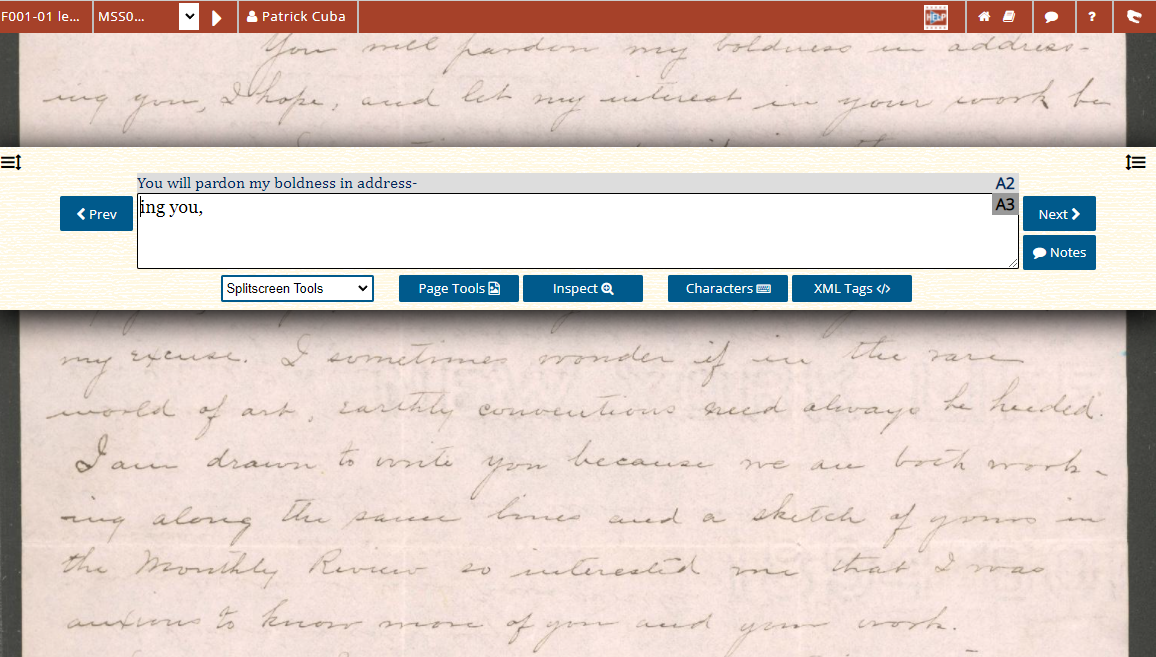 F001-01 le...
MSS0...
Patrick Cuba
HELP
?
You will pardon my boldness in address-
ing you, I hope, and let my interest in your work be
You will pardon my boldness in address-
A2
ing you,
A3
Prev
Next
Notes
Splitscreen Tools
Page Tools
Inspect
Characters
XML Tags </>
my excuse. I sometimes wonder if in the rare
world of art, earthly conventions need always be heeded.
I am drawn to write you because we are both work-
ing along the same lines and a sketch of yours in
the Monthly Review so interested me that I was
anxious to know more of you and your work.